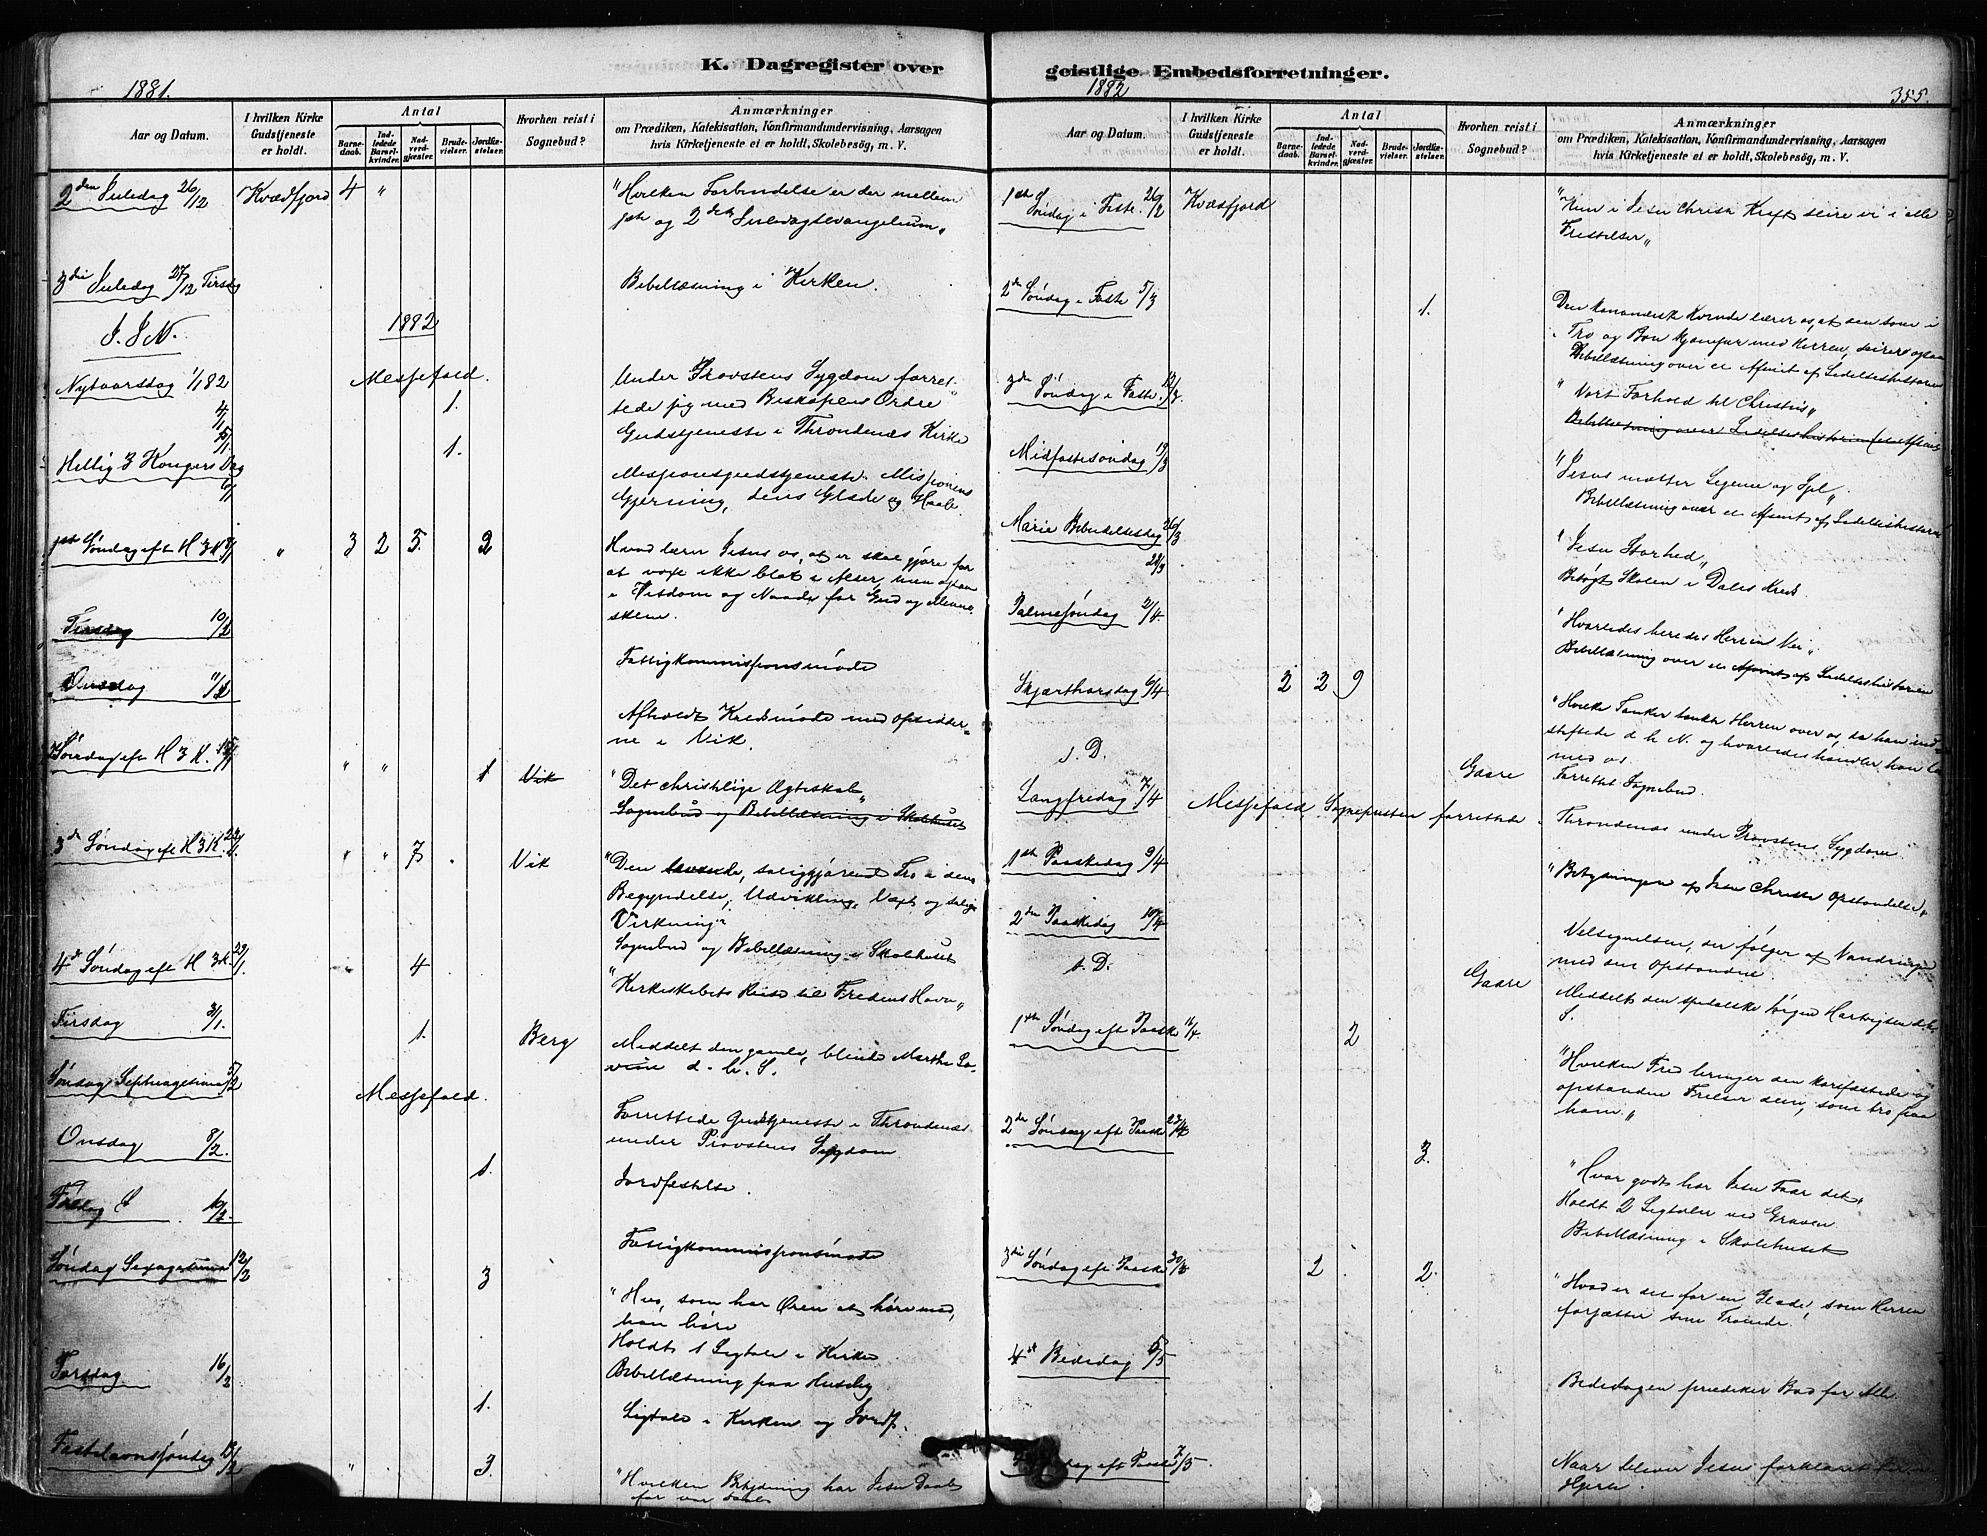 K. Dagregister over
geistlige Embedsforretninger.
1881.
1882
355.
Aar og Datum.
I hvilken Kirke Gudstjeneste er holdt.
Antal
Barne-daab.
Ind-ledede Barsel-kvinder.
Nad-verd-gjester.
Brude-vielser.
Jordfæ-stelser.
Hvorhen reist i Sognebud?
Anmærkninger
om Prædiken, Katekisation, Konfirmandundervisning, Aarsagen
hvis Kirketjeneste ei er holdt, Skolebesög, m. V.
2den Juledag 26/12 Kvædfjord 4 "
"Hvilken Forbindelse er der mellem
1ste og 2den Juledagsevangelium"
3die Juledag 27/12 Tirsdag
Bibellæsning i Kirken.
I. J. N.
1882
Nytaarsdag 1/1 82 Messefald.
Under Provstens Sygdom forret-
tede jeg med Biskopens Ordre
Gudstjeneste i Throndenæs Kirke
4/1 1.
5/1 1.
Hellig 3 Kongers Dag 6/1
Missionsgudstjeneste. Missionens
Gjerning, dens Glæde og Haab.
1ste Søndag eft H 3 K 8/1 " 3 2 5. 2
Hvad lærer Jesus os, at vi skal gjøre for
at voxe ikke blot i Alder, men ogsaa
i Visdom og Naade for Gud og Menne-
skene.
Tirsdag 10/1
Fattigkommissionsmøde
Onsdag 11/1
Afholdt Kredsmøde med Opsidder-
ne i Vik.
Søndag eft H 3 K. 15/1 " " 1 Vik
"Det christelige Ægteskab"
Sognebud og Bibellæsning i Skolhuset
3de Søndag eft H 3 K. 22/1 " " 7 . Vik
"Den levende, saliggjørende Tro i dens
Begyndelse, Udvikling, Væxt og salige
Virkning"
Sognebud og Bibellæsning i Skolehuset
4de Søndag eft H 3 K. 29/1 4
"Kirkeskibets Reise til Fredens Havn"
Tirsdag 31/1. 1. Berg
Meddelt den gamle, blinde Marthe
d. h. S.
Søndag Septuagesima 5/2 Messefald.
Forrettede Gudstjeneste i Throndenæs
under Provstens Sygdom
Onsdag 8/2. 1.
Jordfæstelse.
Fredag 10/2.
Fattigkommissionsmøde
Søndag Sexagesima 12/2 3
"Hvo, som har Øren at høre med,
han høre
Holdt 1 Ligtale i Kirke
Bibellæsning paa Husby
Torsdag 16/2 1.
Ligtale i Kirken og Jordf.
Fastelavnssøndag 19/2 " 3.
"Hvilken Betydning har Jesu Daab
for vor Daab
Aar og Datum.
I hvilken Kirke Gudstjeneste er holdt.
Antal
Barne-daab.
Ind-ledede Barsel-kvinder.
Nad-verd-gjæster.
Brude-vielser.
Jordfæ-stelser.
Hvorhen reist i Sognebud?
Anmærkninger
om Prædiken, Katekisation, Konfirmandundervisning, Aarsagen
hvis Kirketjeneste ei er holdt, Skolebesög, m. V.
1ste Søndag i Faste 26/2 Kvædfjord
"Kun i Jesu Christi Kraft seire vi i alle
Fristelser"
2de Søndag i Faste 5/3 1.
Den kananæiske Kvinde lærer os, at den som i
Tro og Bøn kjæmper med Herren, seirer ogsaa
Bibellæsning over et Afsnit af Lidelseshistorien
3de Søndag i Faste 12/3.
"Vort Forhold til Christus"
Bibellæsning over Lidelseshistorien
Midfastesøndag 19/3
"Jesus mætter Legeme og Sjel"
Bibellæsning over et Afsnit af Lidelseshistorien
Marie Bebudelsesdag 26/3
"Jesu Storhed"
28/3
Besøgt Skolen i Dales Kreds.
Palmesøndag 2/4.
"Hvorledes beredes Herren Vei"
Bibellæsning over et Afsnit af Lidelseshistorien
Skjærthorsdag 6/4 2 2 9
"Hvilke Tanker tænkte Herren over os, da han ind-
stiftede d. h. N. og hvorledes handler han
med os
s. D. Gaare
Forrettet Sognebud.
Langfredag 7/4 Messefald. Sognepresten forrettede i
Throndenæs under Provstens Sygdom.
1ste Paaskedag 9/4
"Betydningen af Jesu Christi Opstandelse"
2den Paaskedag 10/4
Velsignelsen, der følger af Vandringen
med den Opstandne.
s. D. Gaare
Meddelt den spedalske Jørgen Hartvigsen d. h.
S.
1ste Søndag eft Paaske 2
"Hvilken Fred bringer den korsfæstede og
opstandne Frelser dem, som tro paa
ham"
2den Søndag eft Paaske 23/4 3.
"Hvor godt har Jesu Faar det"
Holdt 2 Ligtaler ved Graven
Bibellæsning i Skolehuset
3die Søndag eft Paaske 30/4 2 2.
"Hvad er det for en Glæde, som Herren
forjætter sine Troende!
4st Bededag 5/5
Bededagen prædiker Bod for Alle.
Søndag eft Paaske 7/5
Naar bliver Jesus forklaret for
Hjerte.